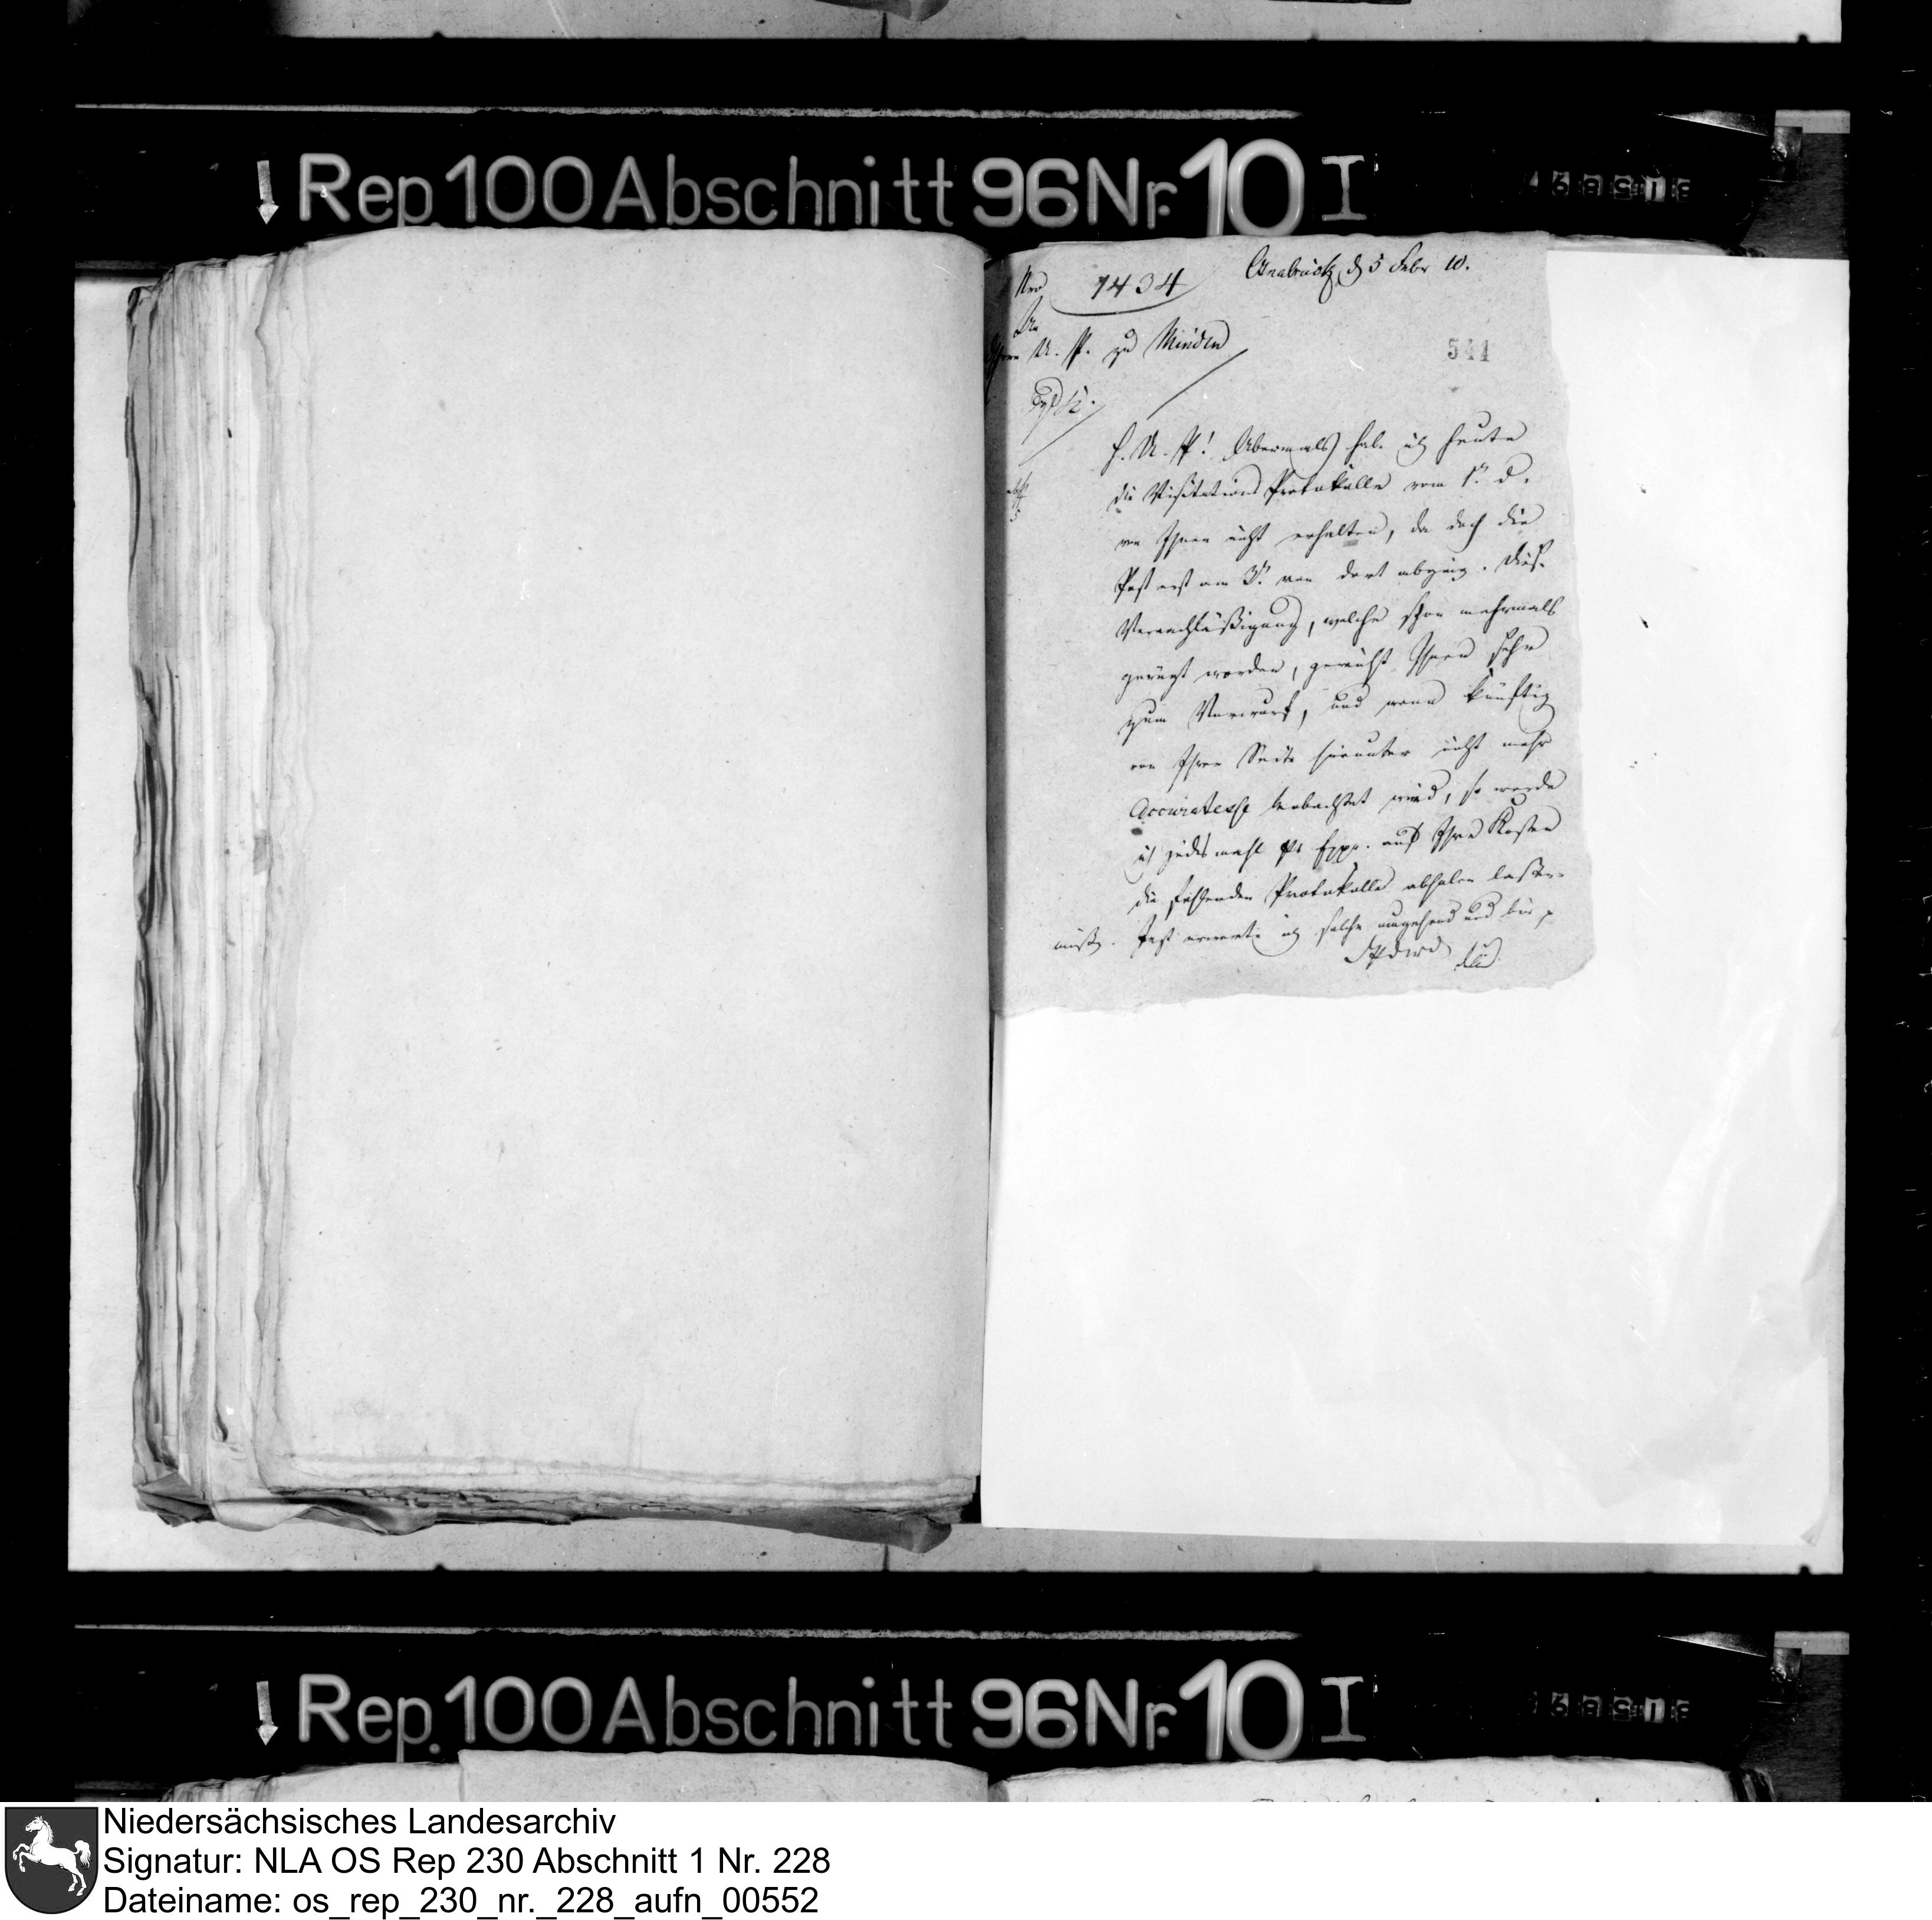 Rep. 100 Abschnitt 96 Nr. 10 I
Osnabrück, d 5 Febr 10.
Nro 1434
An
Herrn U. P. zu Minden
541
H. U. P! Abermals habe ich heute
die Visitations Protokolle vom 1n d.
von Ihnen nicht erhalten, da doch die
Post erst am 3n von dort abging. Diese
Vernachläßigung, welche schon mehrmals
gerügt worden, gereicht Ihnen sehr
zum Vorwurf, und wenn künftig
von Ihrer Seite hierunter nicht mehr
Accuratesse beobachtet wird, so werde
ich jedesmahl pr Expr. auf Ihre Kosten
die fehlenden Protokolle abholen lassen
müssen. Jetzt erwarte ich solche umgehend und bin p
Rep. 100 Abschnitt 96 Nr. 10 I
Niedersächsisches Landesarchiv
Signatur: NLA OS Rep 230 Abschnitt 1 Nr. 228
Dateiname: os_rep_230_nr._228_aufn_00552